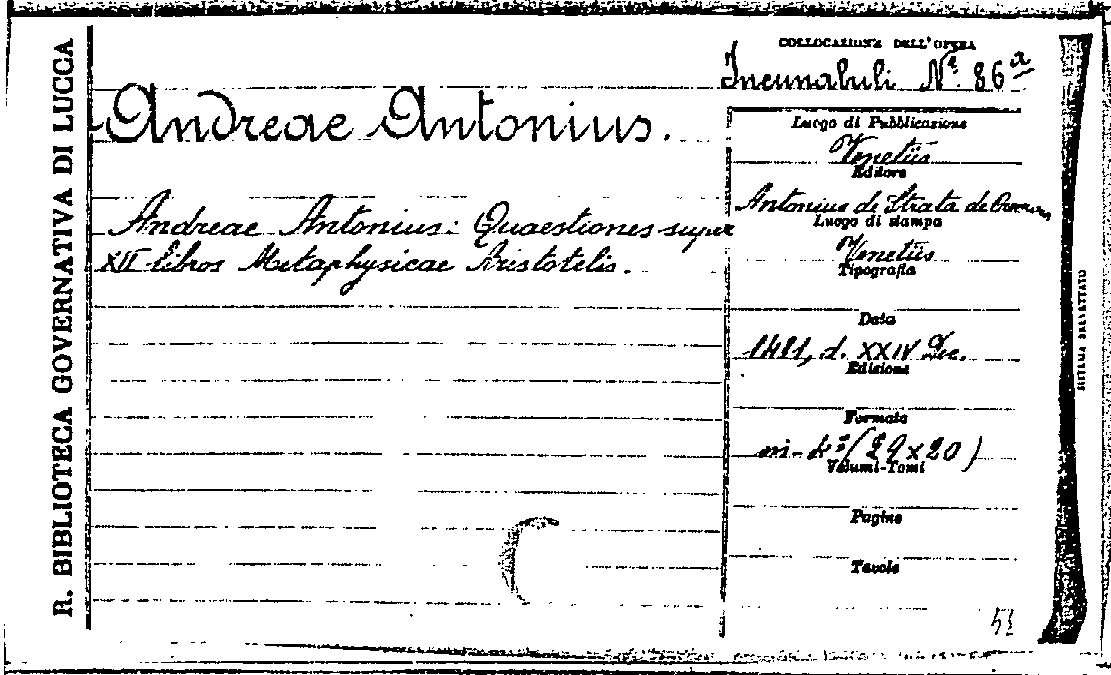 R. BIBLIOTECA GOVERNATIVA DI LUCCA
Andreae Antonius.
Andreae Antonius: Quaestiones super
XII libros Metaphysicae Aristotelis.
COLLOCAZIONE DELL'OPERA
Incunabuli N.º 86 a
Luogo di Pubblicazione
Venetiis
Editore
Antonius de Strata de
Luogo di stampa
Venetiis
Tipografia
Data
1481, d. XXIV Dec.
Edizione
Formato
in-4º (29x20)
Volumi-Tomi
Pagine
Tavole
SISTEMA